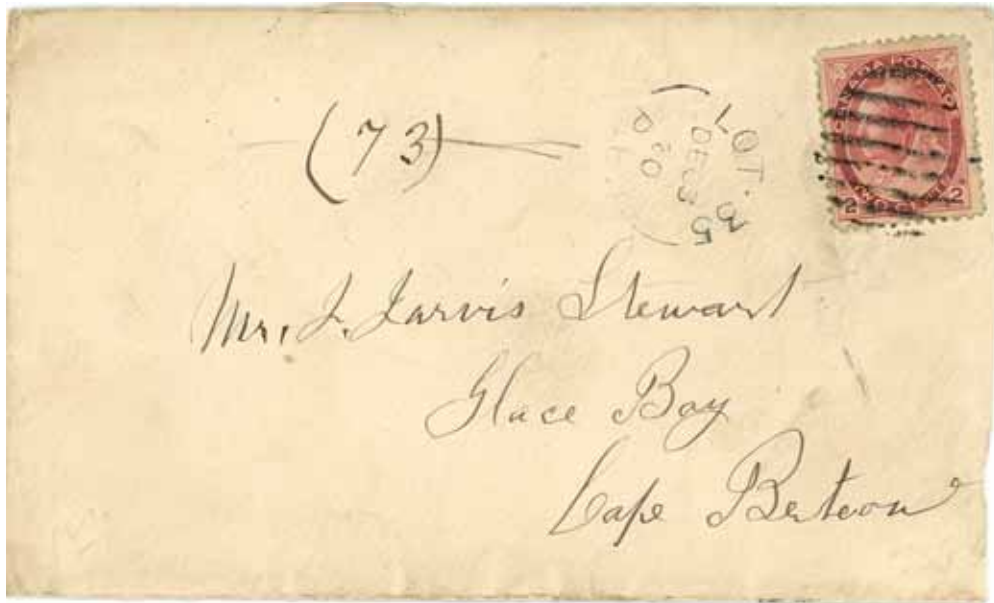 (73)
LOT. 35
DE 3
P
20
2 2
Mr. J. Jarvis Stewart
Glace Bay
Cape Berteon